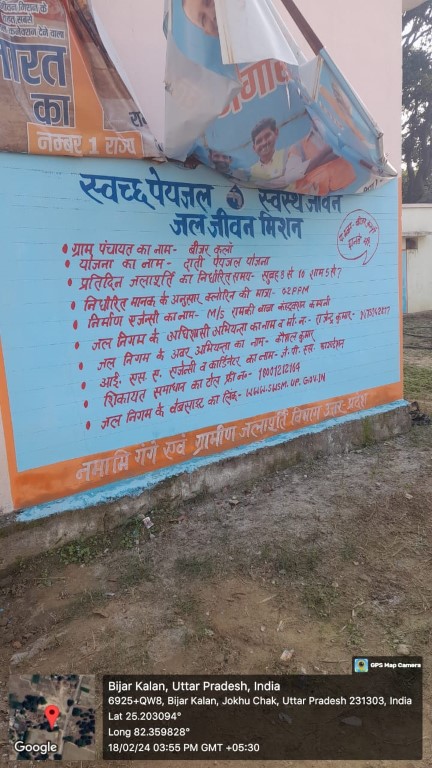 भारत
का
नम्बर 1 राज्य
स्वच्छ पेयजल स्वस्थ जीवन
जल जीवन मिशन
• ग्राम पंचायत का नाम- बीजर कलाँ
• योजना का नाम - दाती पेयजल योजना
• प्रतिदिन जलापूर्ति का निर्धारित समय- सुबह 8 से 10 शाम 5 से 7
• निर्धारित मानक के अनुसार क्लोरिन की मात्रा- 02PPM
• निर्माण एजेन्सी का नाम- M/S रामकी बाबा कंस्ट्रक्शन कम्पनी
• जल निगम के अधिशासी अभियन्ता का नाम व मो. न०- राजेन्द्र कुमार-
• जल निगम के अवर अभियन्ता का नाम- कौशल कुमार
• आई. एस. ए. एजेन्सी व कार्डिनेटर का नाम- जे. पी. एस. फाउन्डेशन
• शिकायत समाधान का टोल फ्री न०- 18001212164
• जल निगम के वेबसाइट का लिंक- WWW.SWSM.UP.GOV.IN
नमामि गंगे एवं ग्रामीण जलापूर्ति विभाग उत्तर प्रदेश
GPS Map Camera
Bijar Kalan, Uttar Pradesh, India
6925+QW8, Bijar Kalan, Jokhu Chak, Uttar Pradesh 231303, India
Lat 25.203094°
Long 82.359828°
18/02/24 03:55 PM GMT +05:30
Google